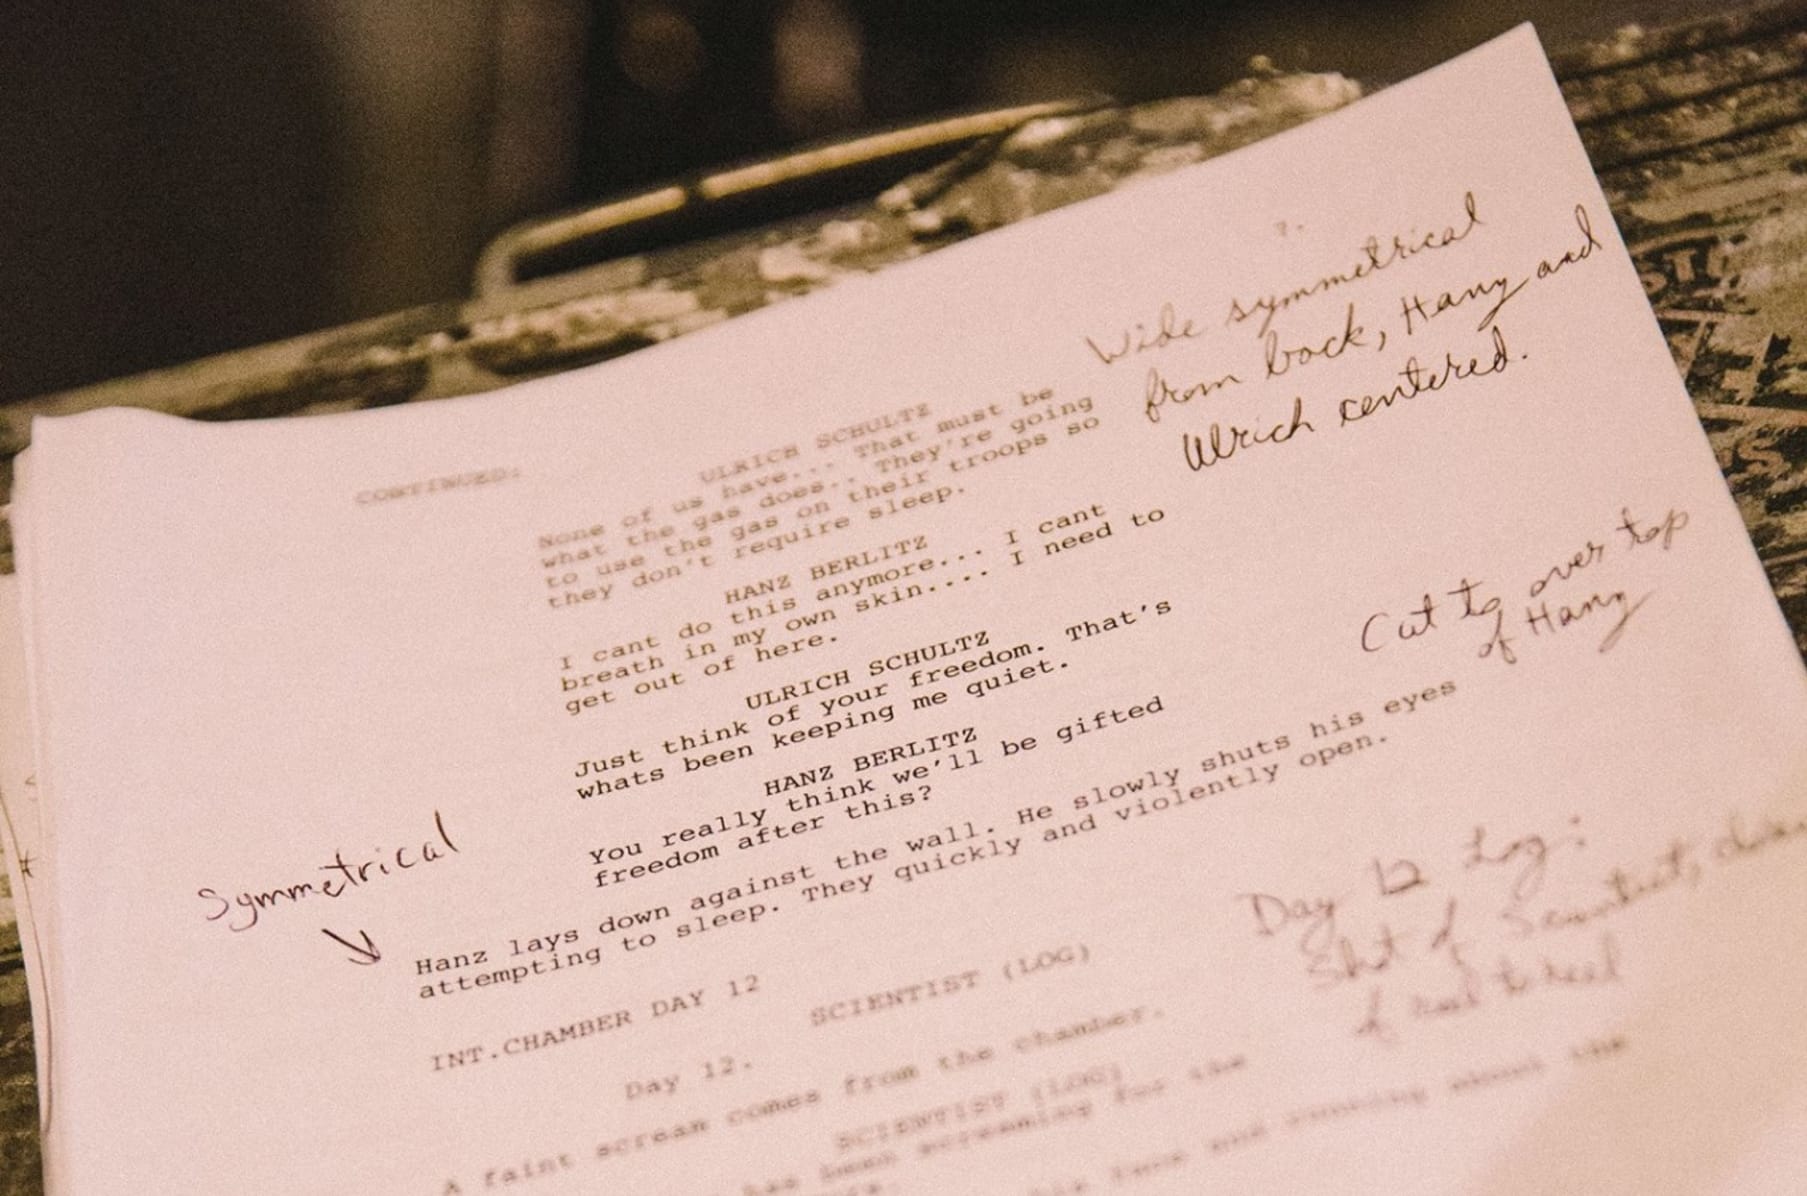 Wide symmetrical
from back, Hanz and
Ulrich centered.
CONTINUED:
ULRICH SCHULTZ
None of us have... That must be
what the gas does.. They're going
to use the gas on their troops so
they don't require sleep.
HANZ BERLITZ
I cant do this anymore... I cant
breath in my own skin.... I need to
get out of here.
Cut to over top
of Hanz
ULRICH SCHULTZ
Just think of your freedom. That's
whats been keeping me quiet.
HANZ BERLITZ
You really think we'll be gifted
freedom after this?
Symmetrical
Hanz lays down against the wall. He slowly shuts his eyes
attempting to sleep. They quickly and violently open.
Day 12 Log:
Shot of Scientist,
of reel to reel
INT.CHAMBER DAY 12
SCIENTIST (LOG)
Day 12.
A faint scream comes from the chamber.
SCIENTIST (LOG)
has been screaming for the
face and running about the